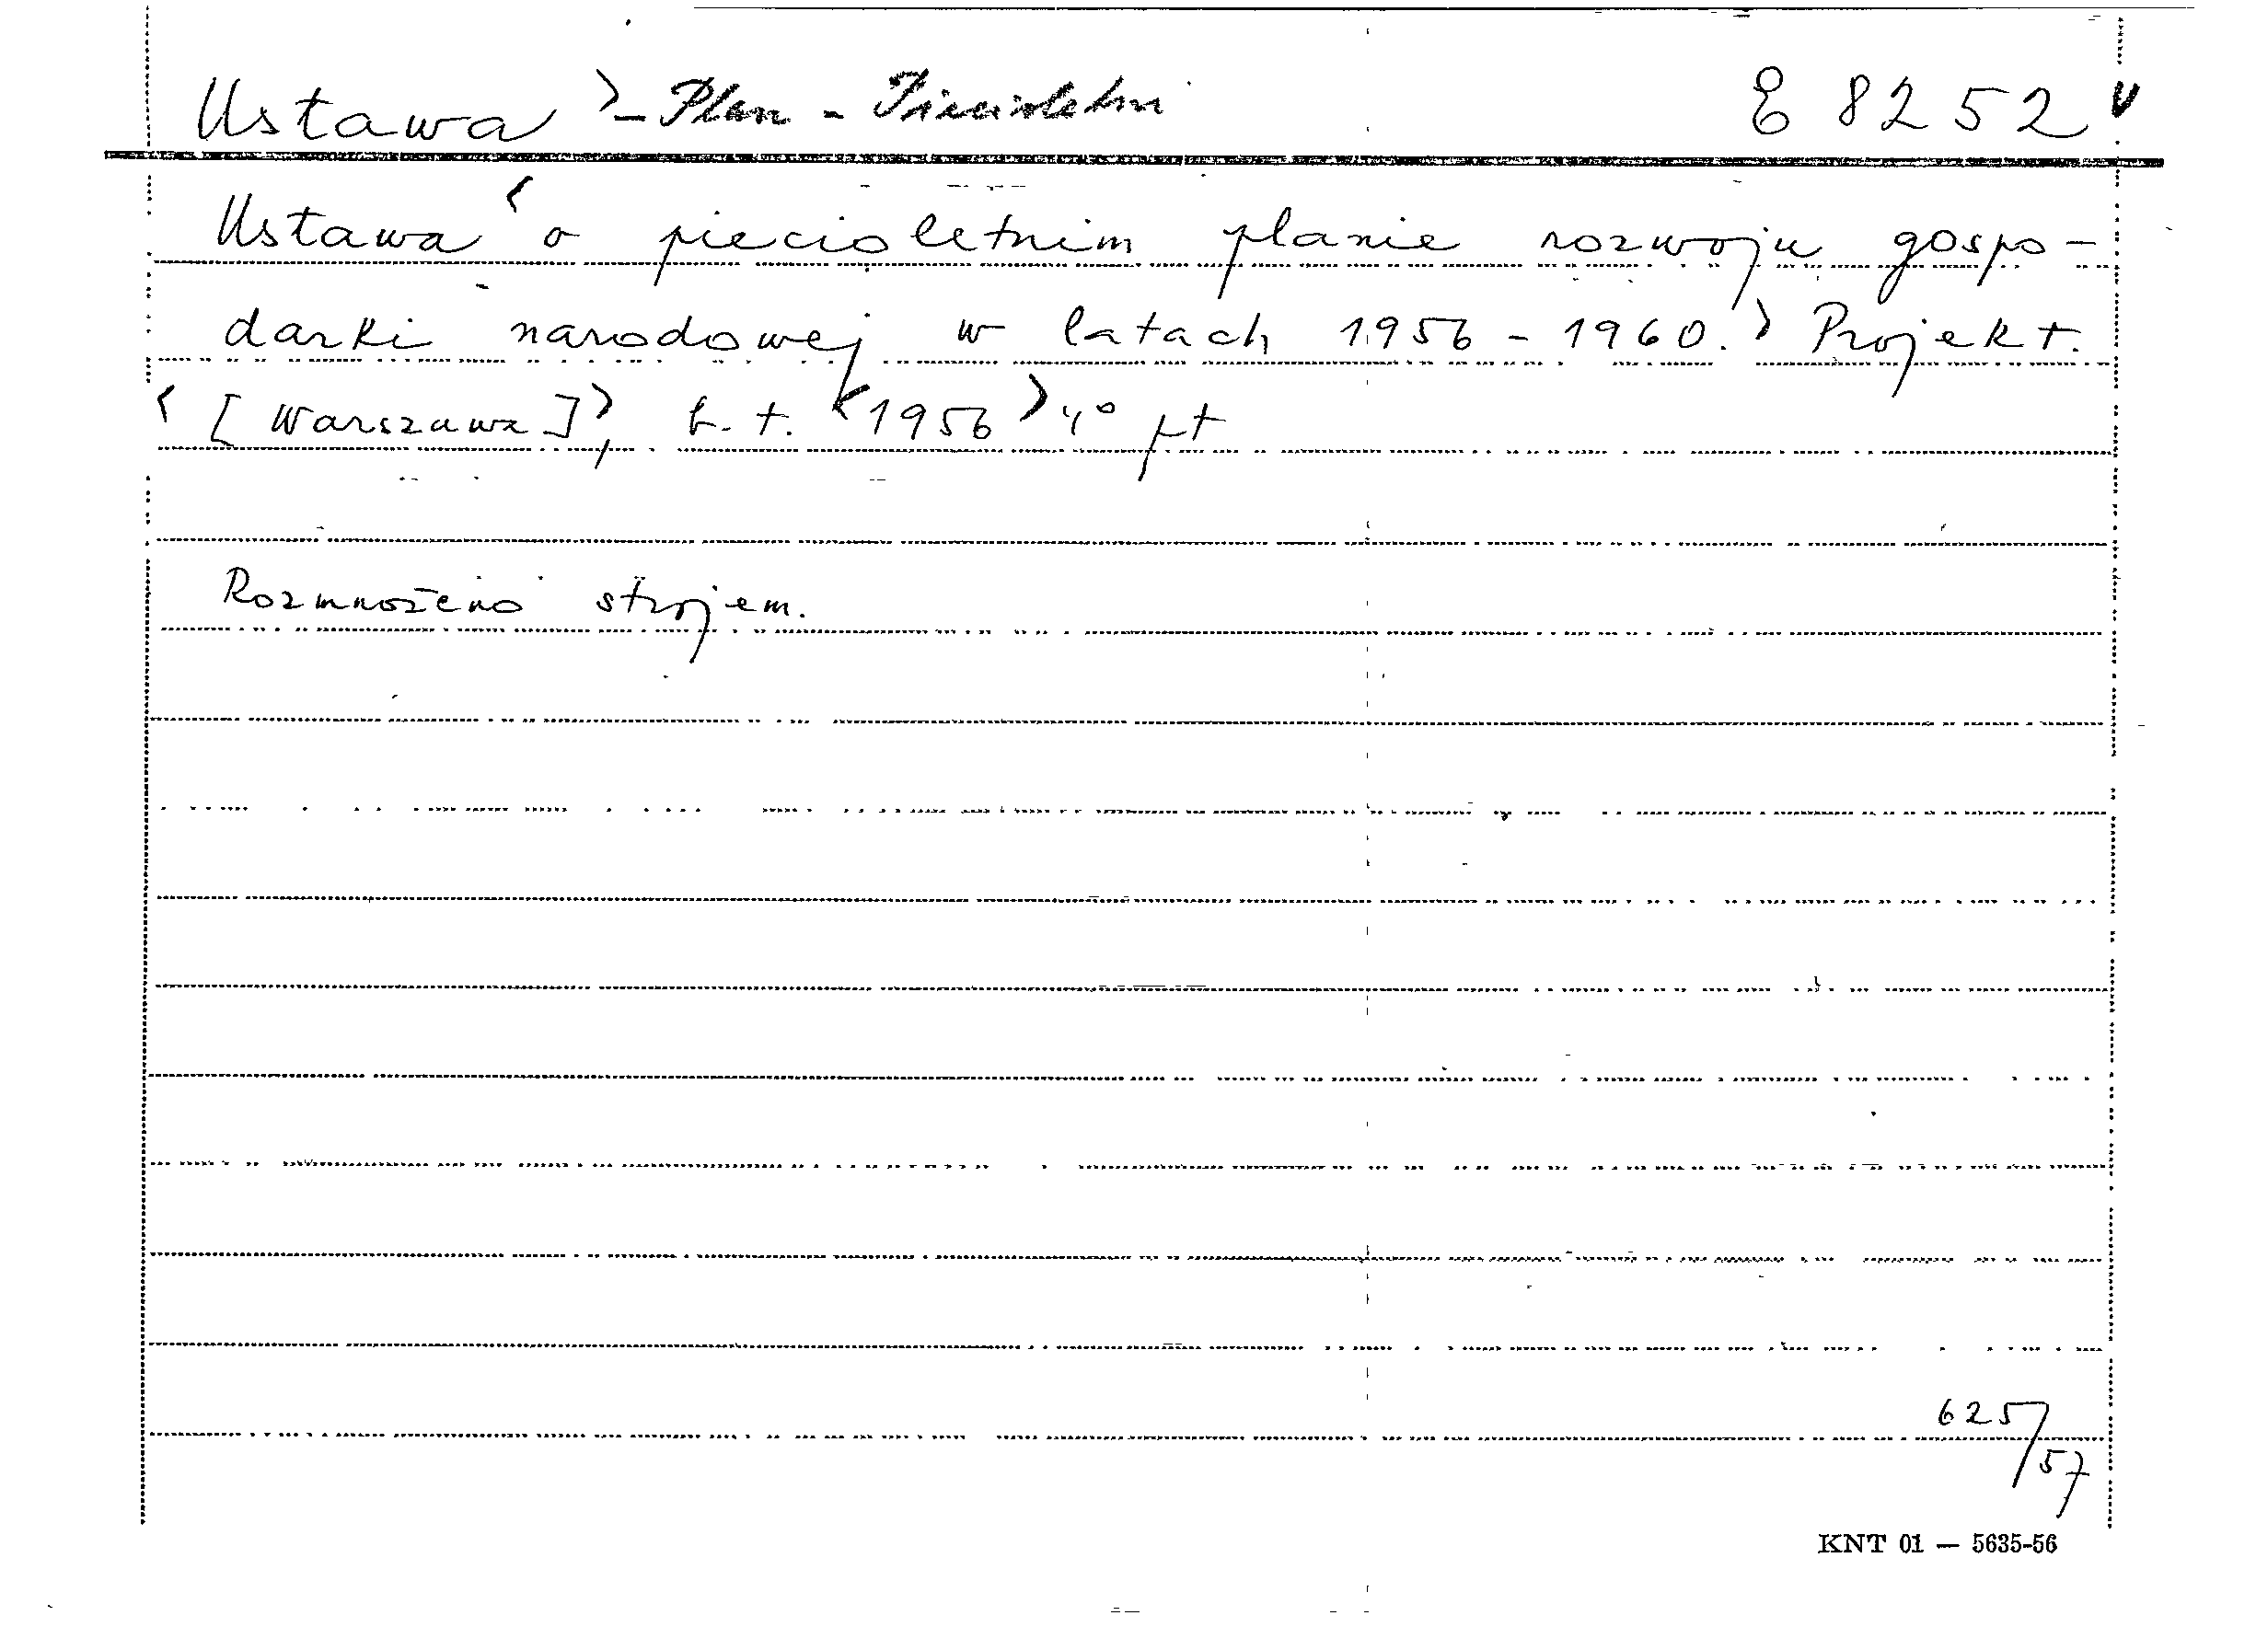 Ustawa > - Plan - Piecioletni E 8252 v
< Ustawa o piecioletnim planie rozwoju gospo-
darki narodowej w latach 1956 - 1960. > Projekt.
< [Warszawa] >, b. t. < 1956 > 4° pt
Rozmnoženo strojem.
625/57
KNT 01 — 5635-56